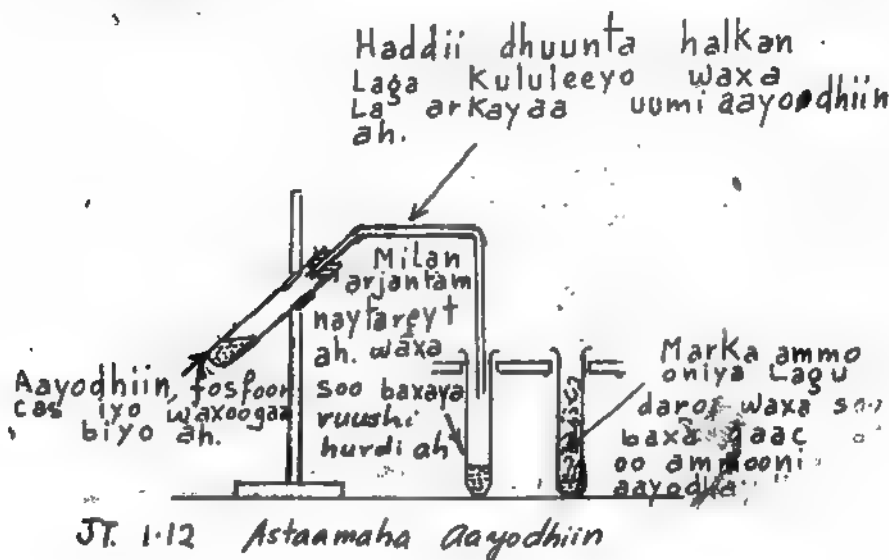 Haddii dhuunta halkan
Laga Kululeeyo waxa
La arkayaa uumi aayodhiin
ah.
Milan
arjantam
naytareyt
ah. waxa
soo baxaya
ruushi
hurdi ah
Aayodhiin, fosfoor
cas iyo waxoogaa
biyo ah.
Marka ammo
oniya Lagu
daro waxa soo
baxa qaac
oo ammooni
JT. 1.12 Astaamaha Aayodhiin